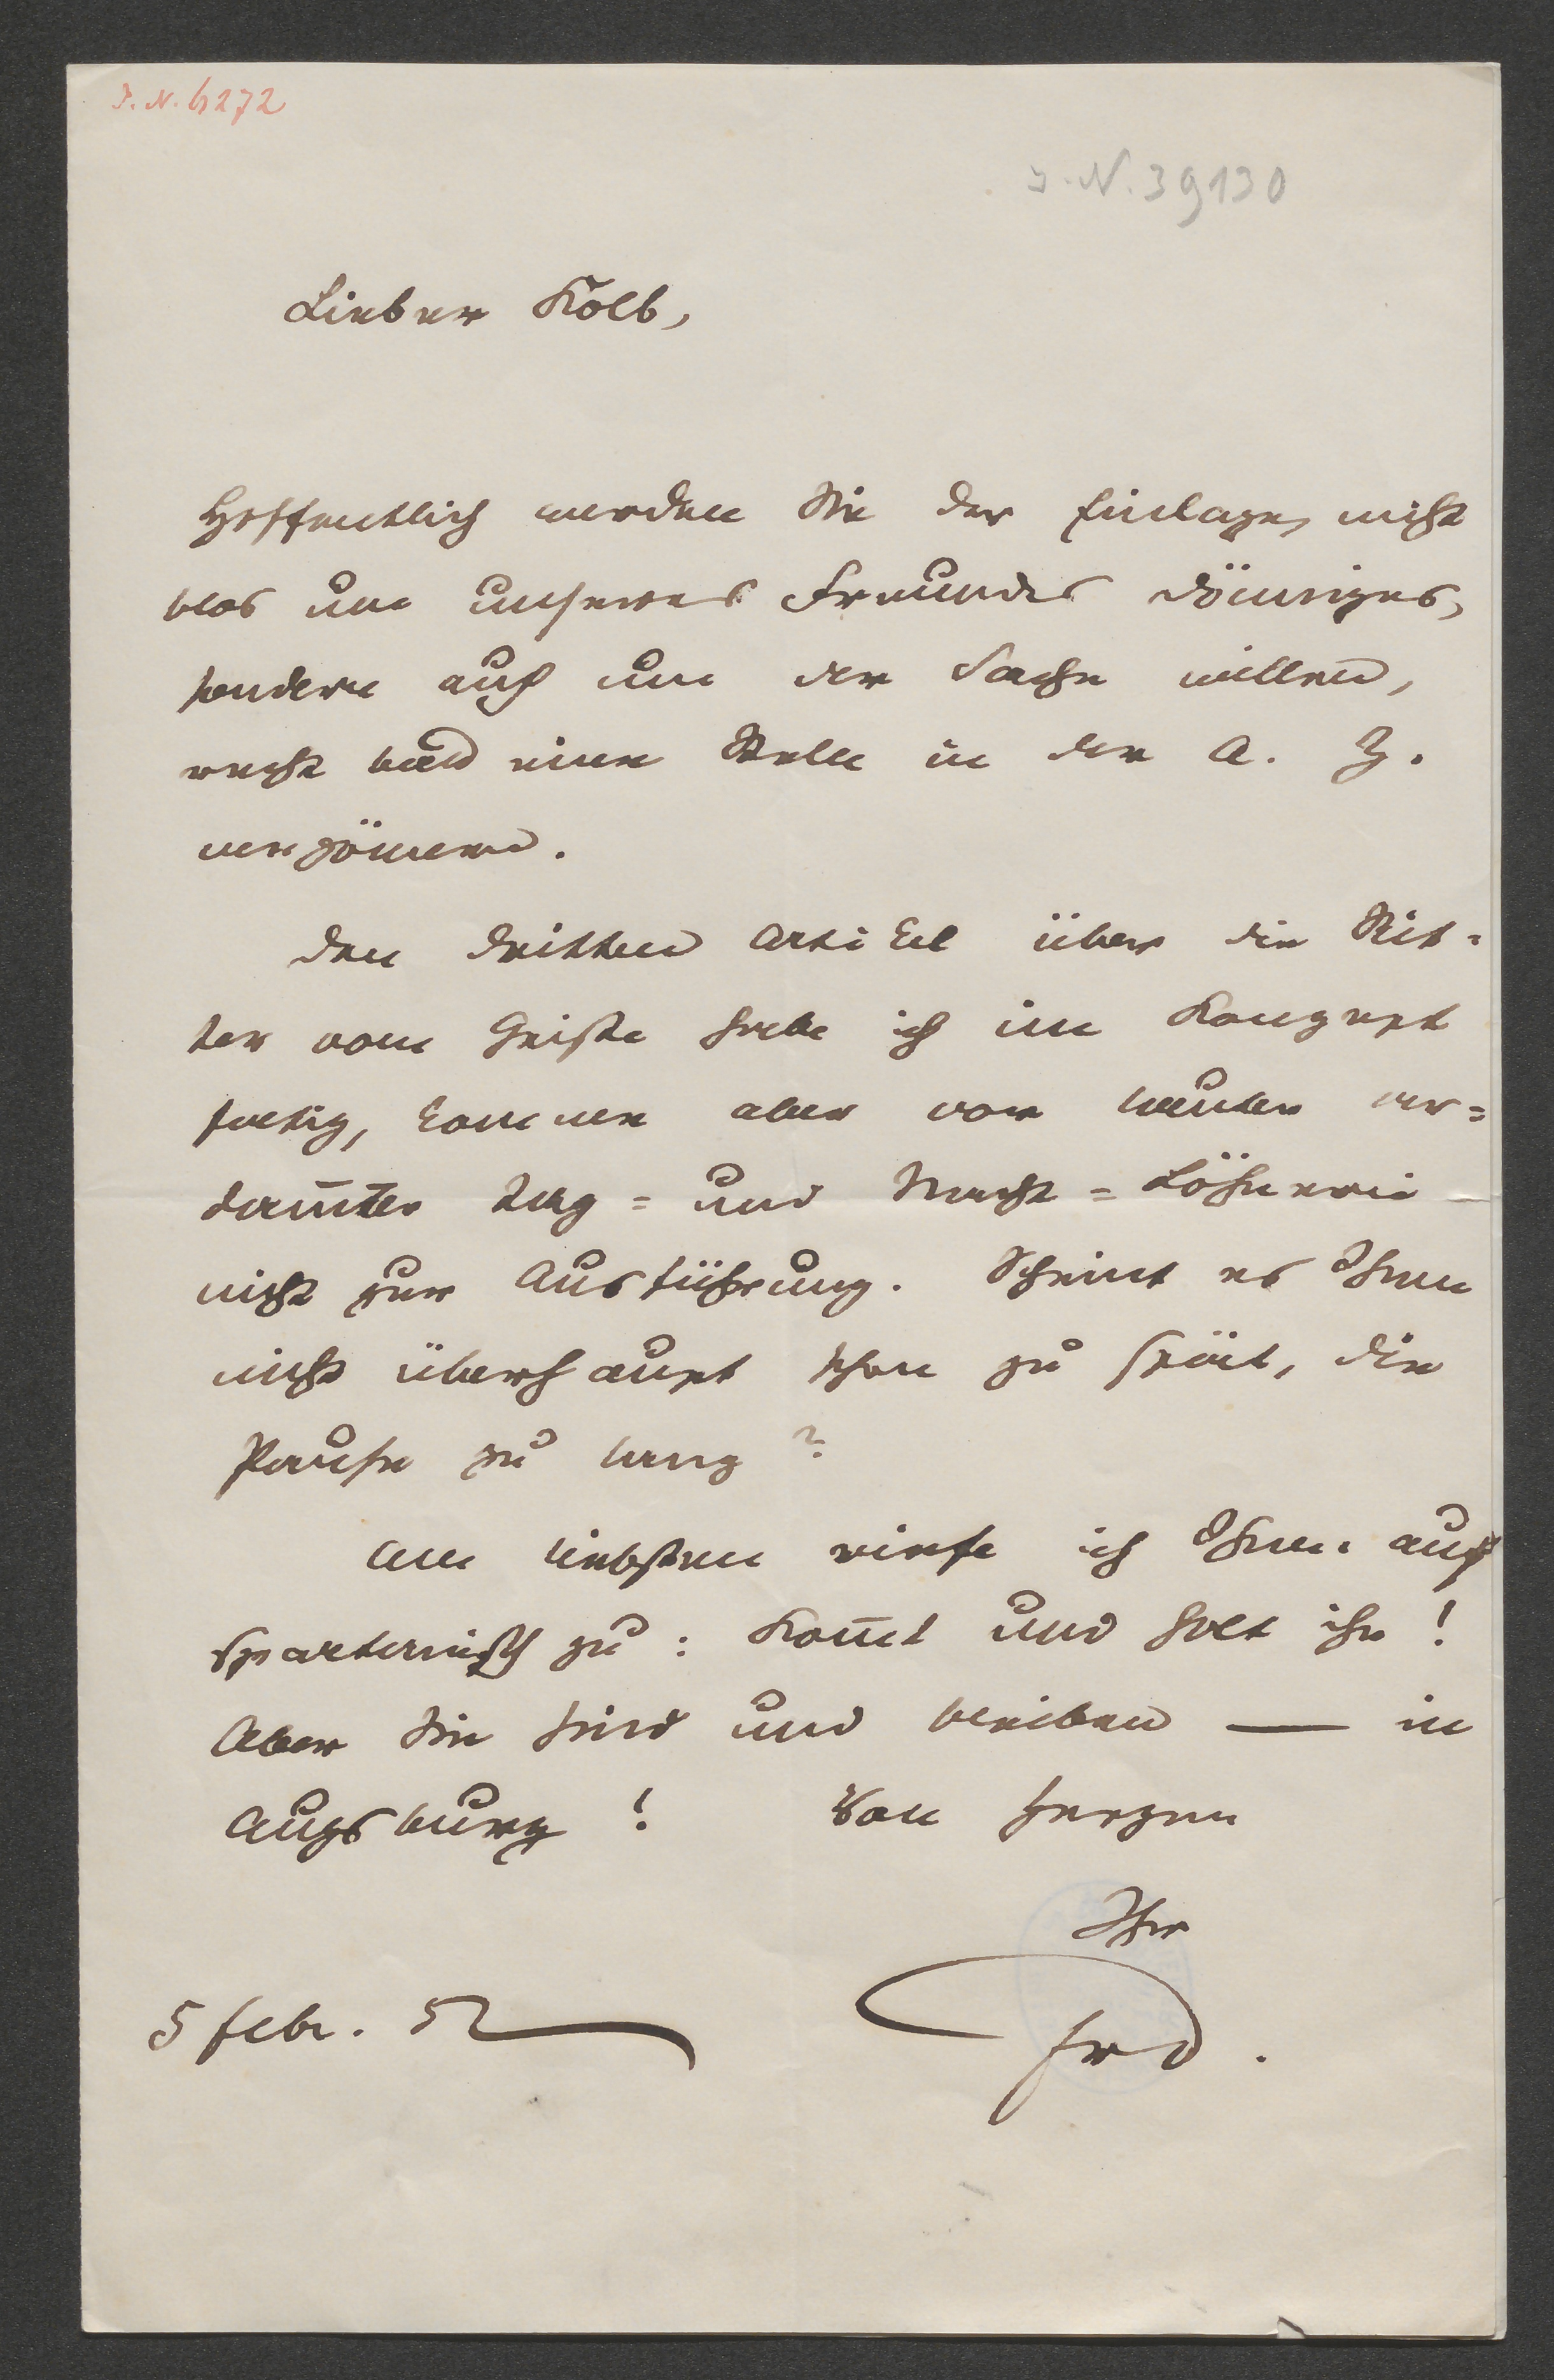 I. N. 6272
I. N. 39130
Lieber Kolb,
Hoffentlich werden Sie der Einlage, nicht
blos um unseres Freundes Dönniges,
sondern auch um der Sache willen,
recht bald eine Stelle in der A. Z.
vergönnen.
Den dritten Artikel über die Rit=
ter vom Geiste habe ich im Konzept
fertig, komme aber vor lauter ver=
dam̅ter Tag= und Nacht=Löhnerei
nicht zur Ausführung. Scheint es Ihnen
nicht überhaupt schon zu spät, die
Pause zu lang?
Am liebsten riefe ich Ihnen auf
spartanisch zu: Kom̅t und holt ihn!
Aber Sie sind und bleiben — in
Augsburg! Von Herzen
Ihr
5 febr. 52
FrD.